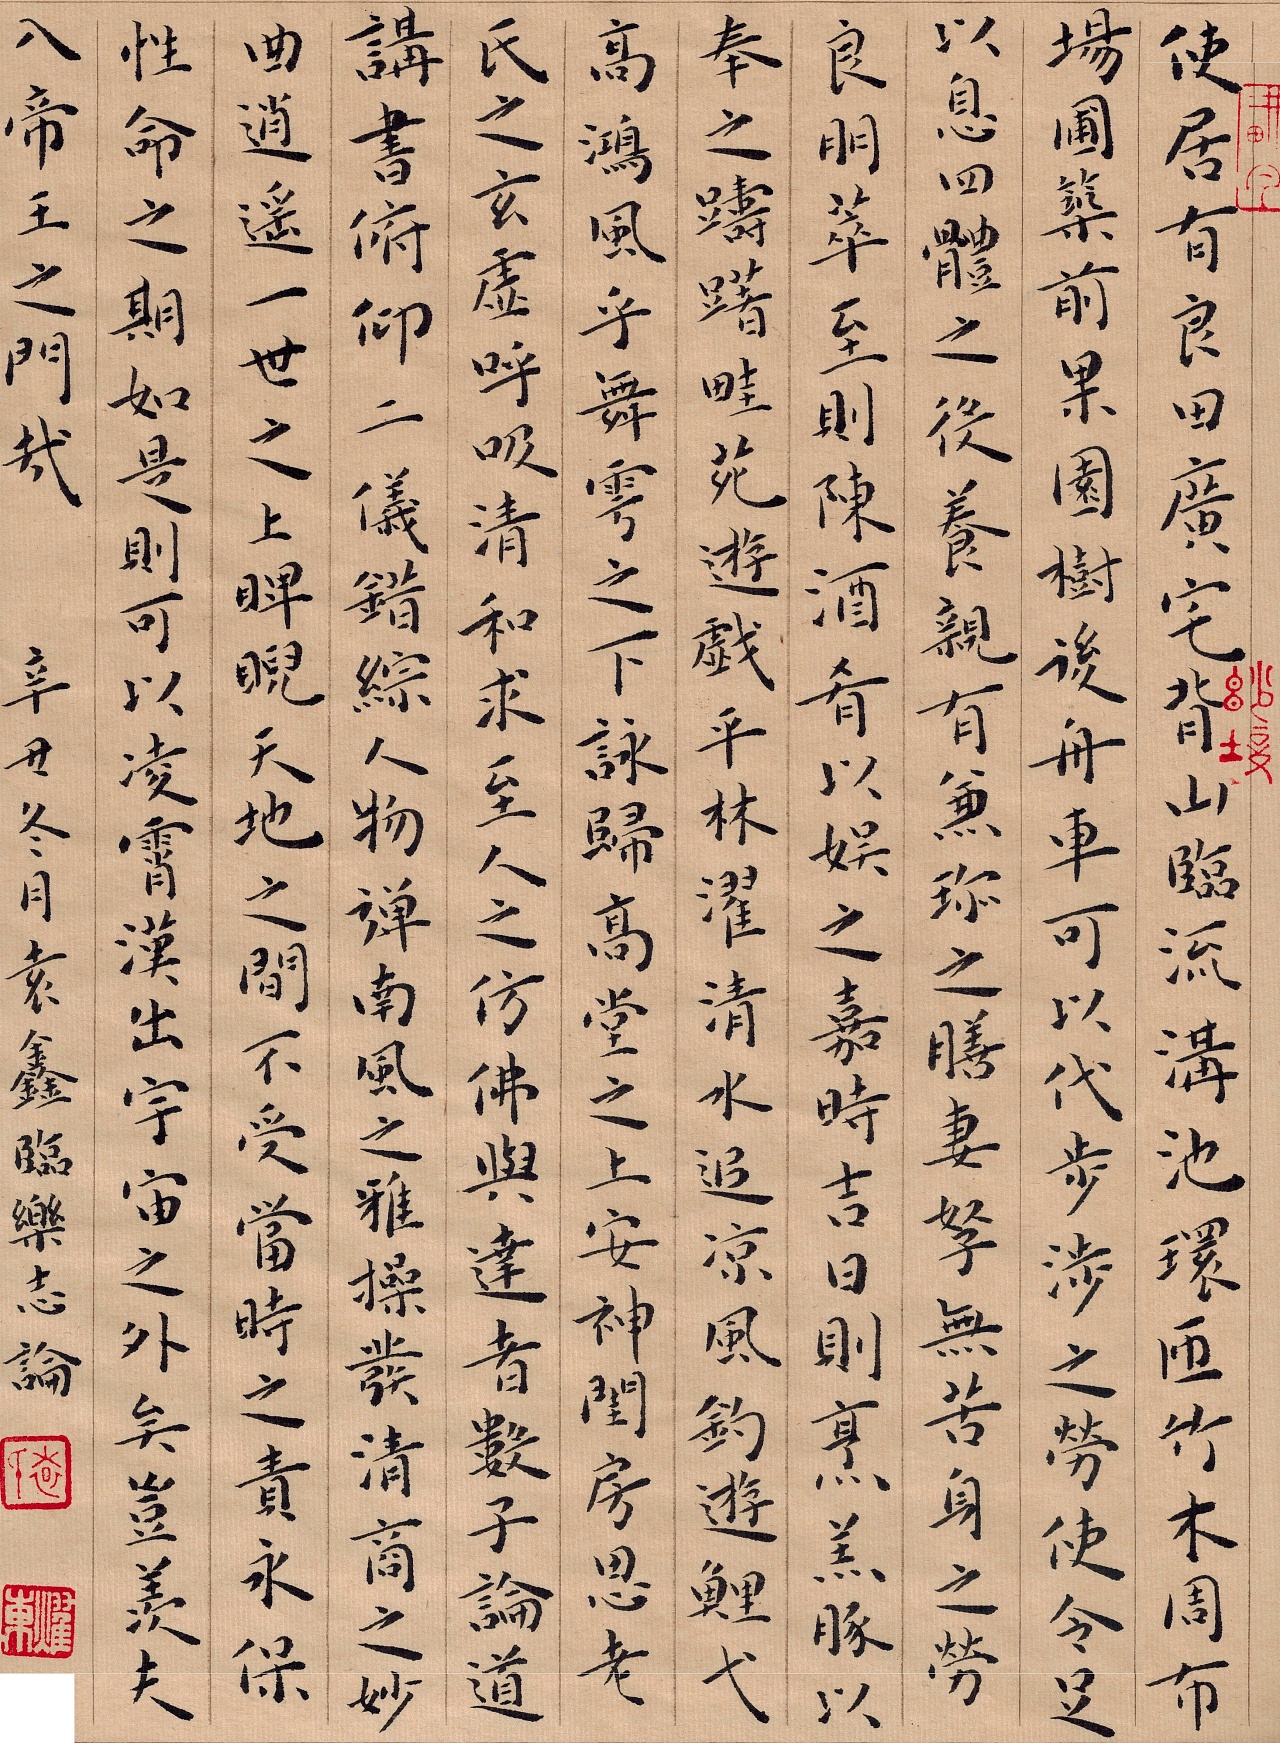 使居有良田廣宅背山臨流溝池環匝竹木周布
場圃築前果園樹後舟車可以代步涉之勞使令足
以息四體之役養親有兼珎之膳妻孥無苦身之勞
良朋萃至則陳酒肴以娱之嘉時吉日則烹羔豚以
奉之躊躇畦苑遊戲平林濯清水追凉風釣遊鯉弋
高鴻風乎舞雩之下詠歸高堂之上安神閨房思老
氏之玄虛呼吸清和求至人之仿佛與達者數子論道
講書俯仰二儀錯綜人物弹南風之雅操發清商之妙
曲逍遥一世之上睥睨天地之間不受當時之責永保
性命之期如是則可以凌霄漢出宇宙之外矣豈羨夫
入帝王之門哉 辛丑冬月袁鑫臨樂志論